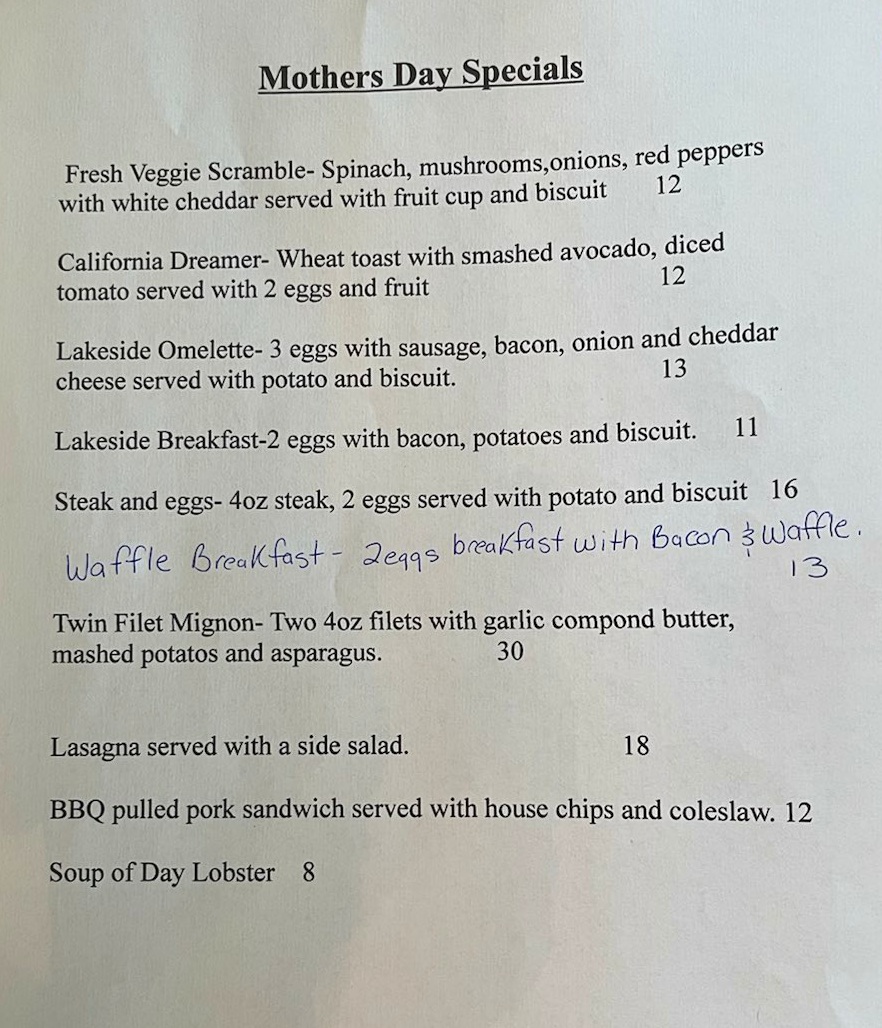 Mothers Day Specials
Fresh Veggie Scramble- Spinach, mushrooms,onions, red peppers
with white cheddar served with fruit cup and biscuit 12
California Dreamer- Wheat toast with smashed avocado, diced
tomato served with 2 eggs and fruit 12
Lakeside Omelette- 3 eggs with sausage, bacon, onion and cheddar
cheese served with potato and biscuit. 13
Lakeside Breakfast-2 eggs with bacon, potatoes and biscuit. 11
Steak and eggs- 4oz steak, 2 eggs served with potato and biscuit 16
Waffle Breakfast - 2eggs breakfast with Bacon & Waffle.
13
Twin Filet Mignon- Two 4oz filets with garlic compond butter,
mashed potatos and asparagus. 30
Lasagna served with a side salad. 18
BBQ pulled pork sandwich served with house chips and coleslaw. 12
Soup of Day Lobster 8